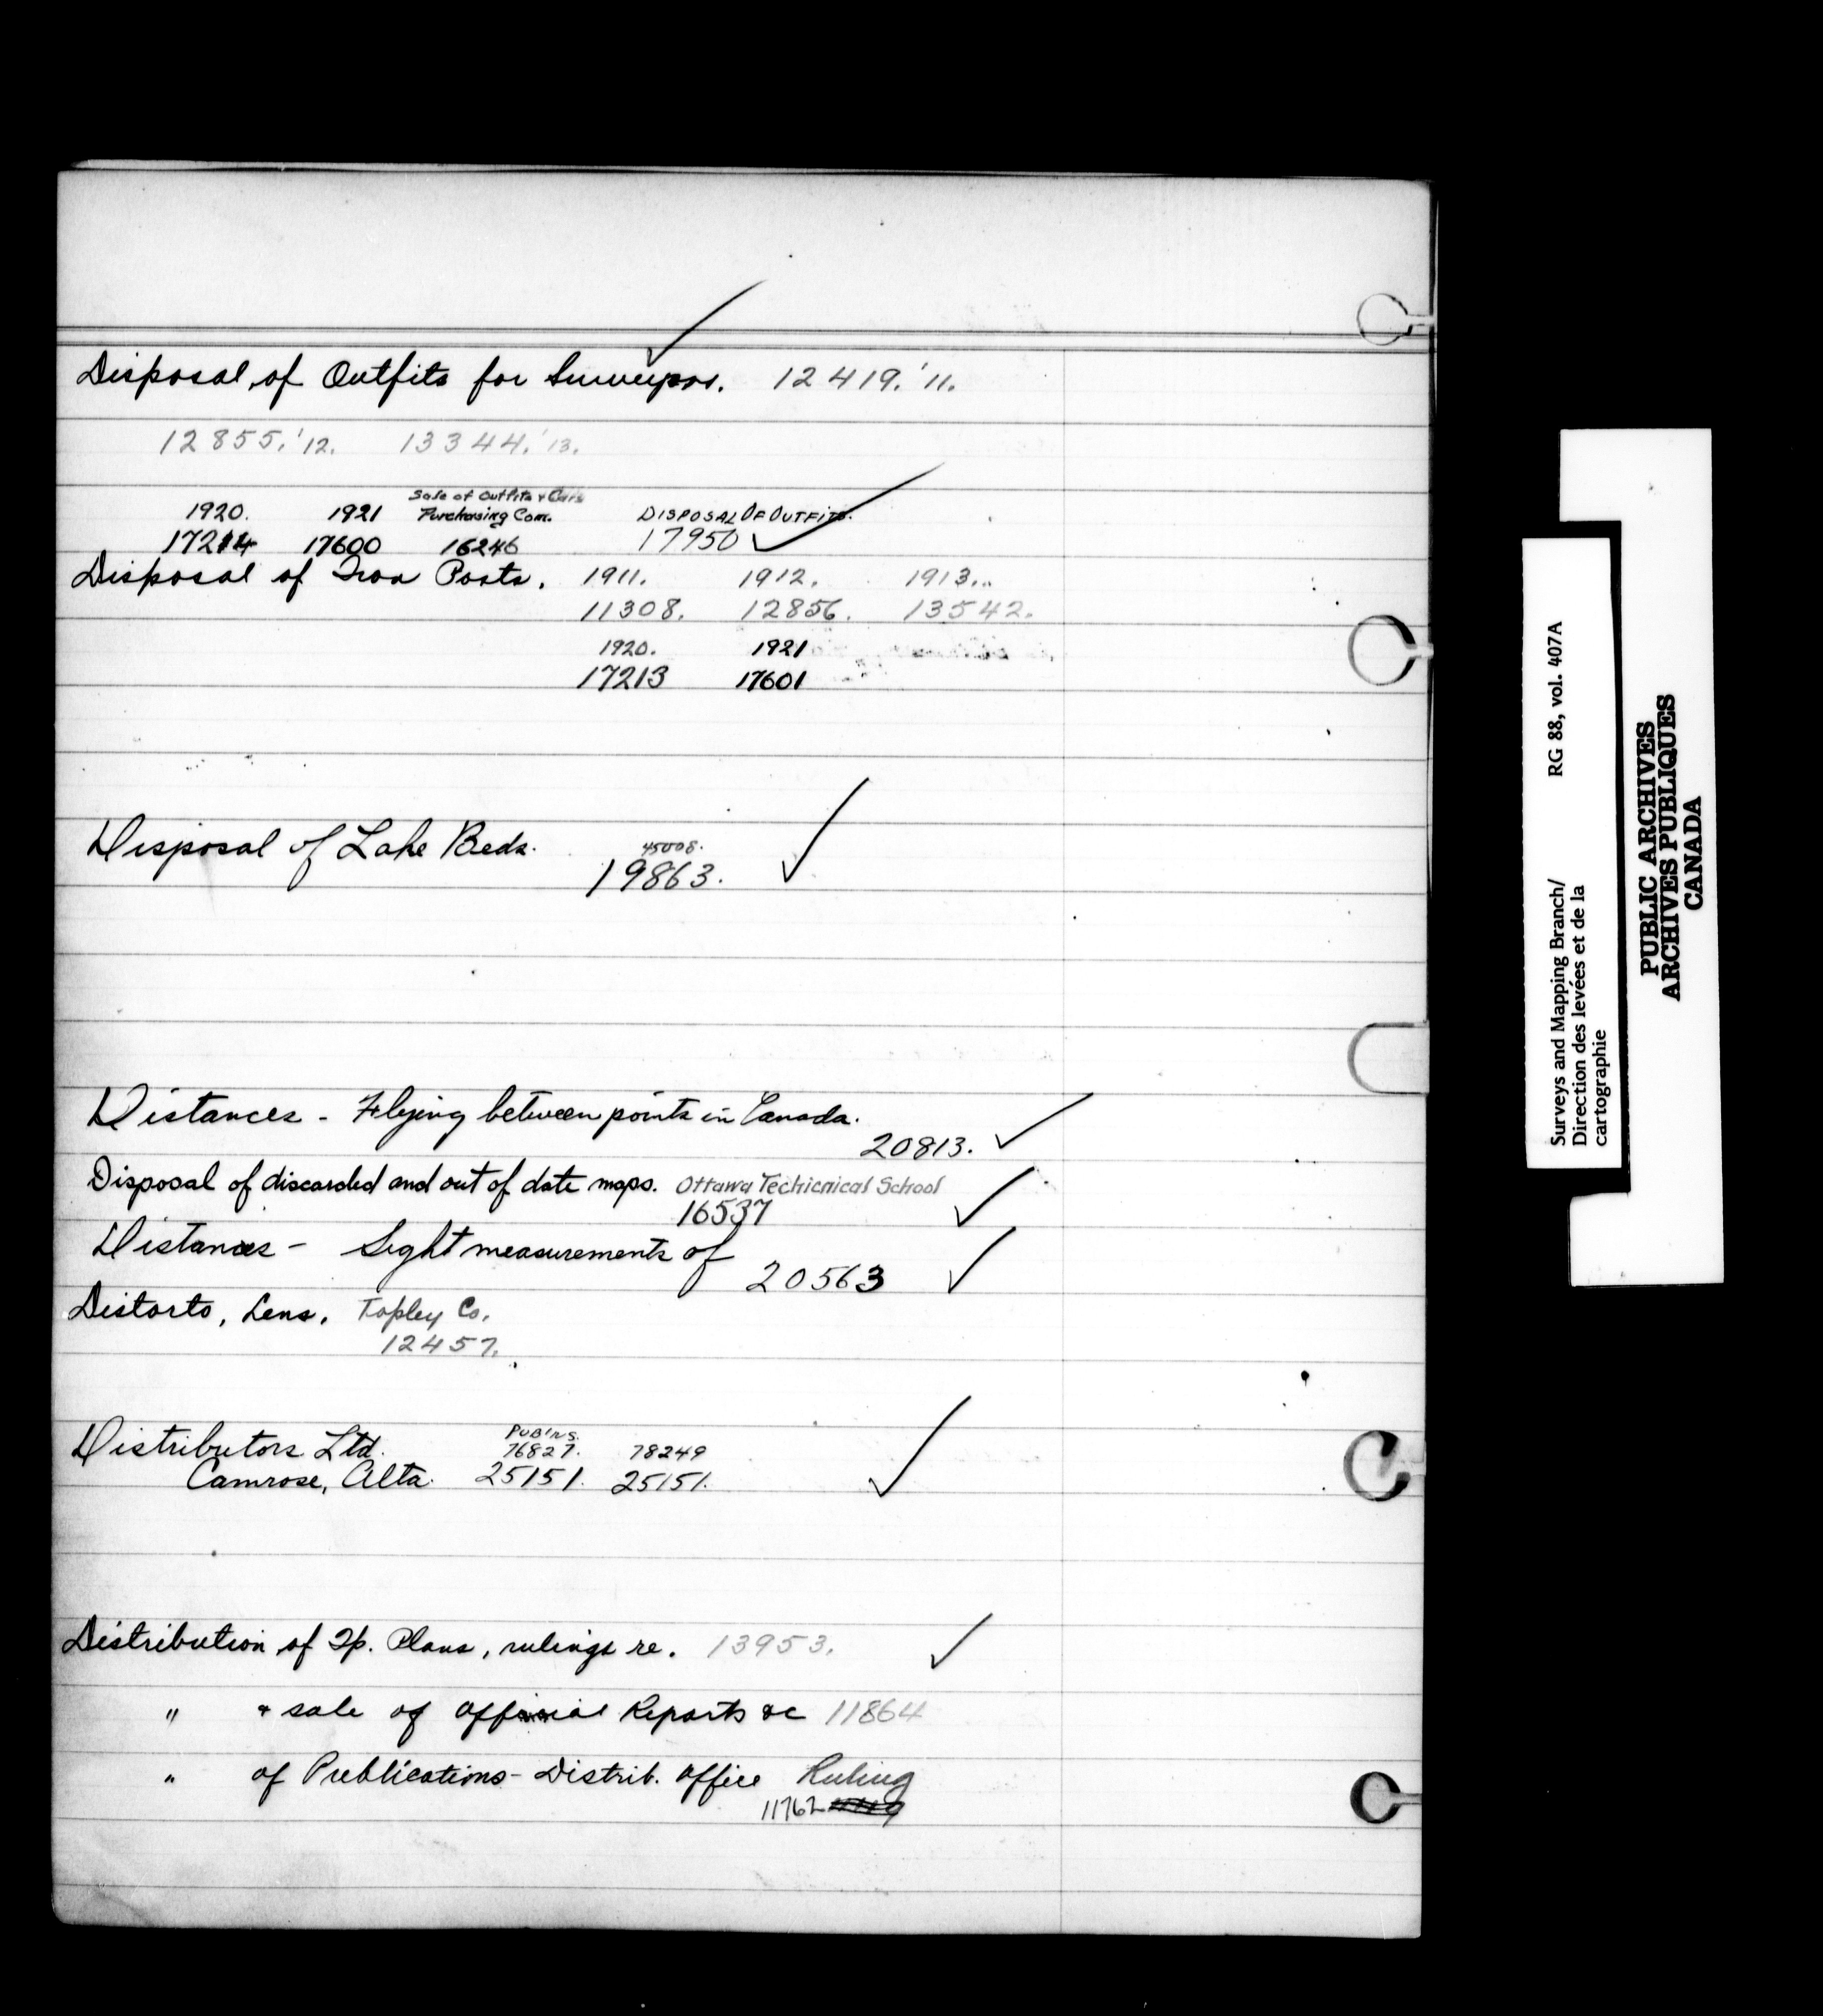 Disposal of Outfits for Surveyors. 12419.'11.
12855.'12. 13344.'13.
Sale of Outfits & Cars
1920. 1921 Purchasing Com. DISPOSAL OF OUTFITS.
17214 17600 16246 17950
Disposal of Iron Posts. 1911. 1912. 1913.
11308. 12856. 13542.
1920. 1921
17213 17601
Disposal of Lake Beds. 45008.
19863.
Distances - Flying between points in Canada.
20813.
Disposal of discarded and out of date maps. Ottawa Techicnical School
16537
Distances - Sight measurements of
20563
Distorto, Lens. Topley Co.
12457.
Publrs.
Distributors Ltd. 76827. 78249
Camrose, Alta. 25151. 25151.
Distribution of Tp. Plans, rulings re. 13953.
" & sale of official Reports &c 11864
" of Publications - Distrib. Office Ruling
11762
Surveys and Mapping Branch/ RG 88, vol. 407A
Direction des levées et de la
cartographie
PUBLIC ARCHIVES
ARCHIVES PUBLIQUES
CANADA